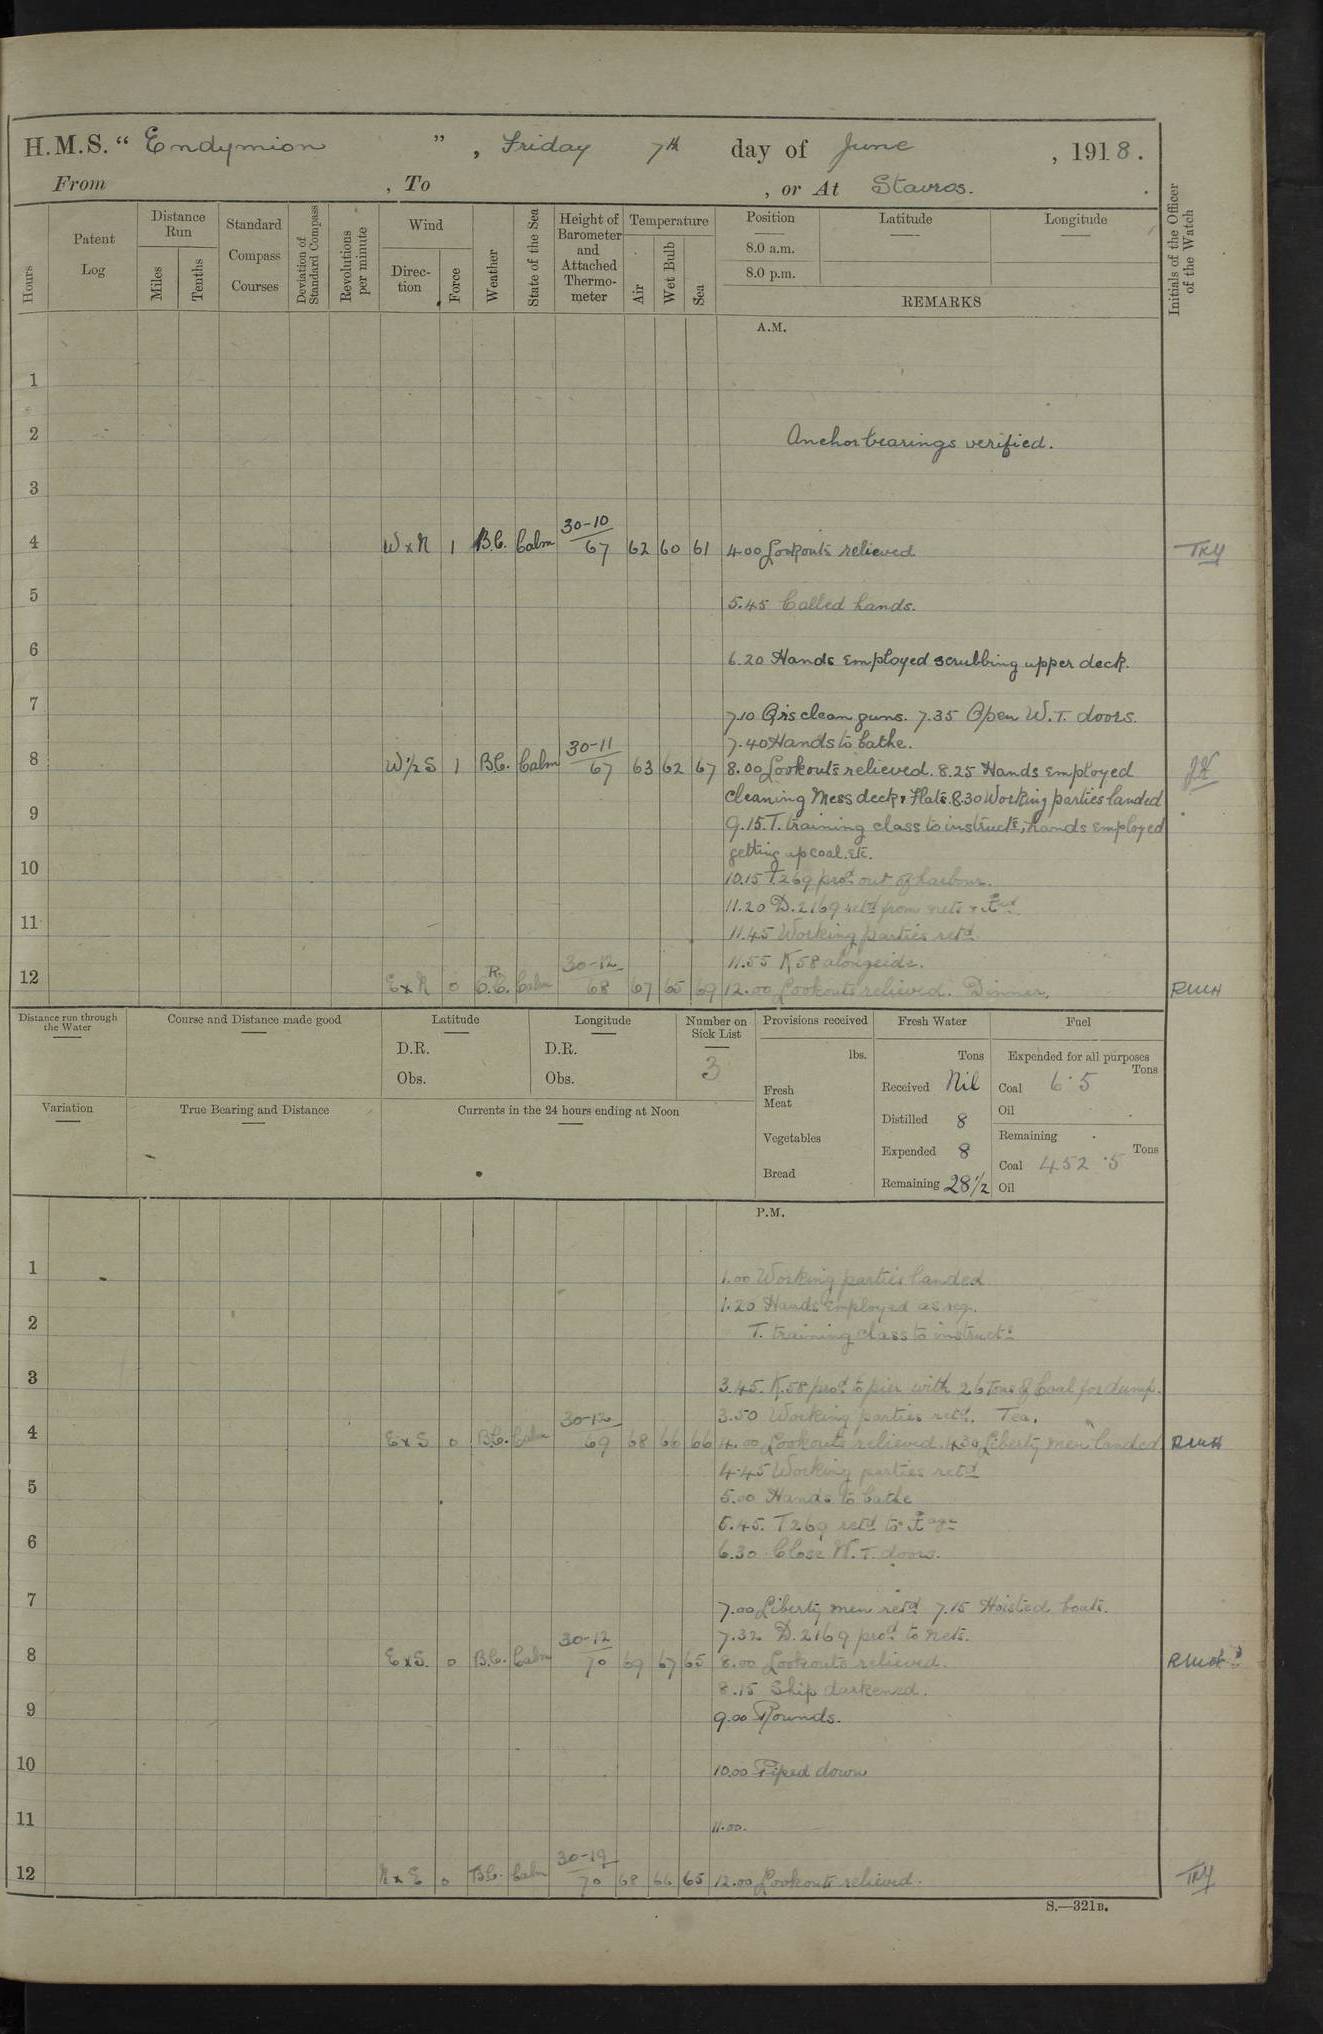 H.M.S. “ Endymion ” , Friday 7th day of June , 1918.
From , To , or At Stavros.
Hours
Patent Log
Distance Run
Miles
Tenths
Standard Compass Courses
Deviation of Standard Compass
Revolutions per minute
Wind
Direction
Force
Weather
State of the Sea
Height of Barometer and Attached Thermometer
Temperature
Air
Wet Bulb
Sea
Position
8.0 a.m.
8.0 p.m.
Latitude
Longitude
REMARKS
Initials of the Officer of the Watch
A.M.
1
2 Anchor bearings verified.
3
4 W x N 1 B.C. Calm 30-10 67 62 60 61 4.00 Lookouts relieved
5 5.45 Called hands.
6 6.20 Hands employed scrubbing upper deck.
7 7.10 Qrs clean guns. 7.35 Open W.T. doors.
7.40 Hands to bathe.
8 W½S 1 B.C. Calm 30-11 67 63 62 67 8.00 Lookouts relieved. 8.25 Hands employed
cleaning Mess deck & Flats. 8.30 Working parties landed
9 9.15. T. training class to instructn, hands employed
getting up coal. Etc.
10 10.15 T269 procd out of harbour.
11.20 D.2169 retd from nets &
11 11.45 Working parties retd
11.55 K58 alongside.
12 E x N 0 R. Calm 30-12 68 67 65 69 12.00 Lookouts relieved. Dinner. RMH
Distance run through the Water
Course and Distance made good
Latitude
D.R.
Obs.
Longitude
D.R.
Obs.
Number on Sick List
3
Provisions received
lbs.
Fresh Meat
Vegetables
Bread
Fresh Water
Tons
Received Nil
Distilled 8
Expended 8
Remaining 28½
Fuel
Expended for all purposes
Tons
Coal 6.5
Oil
Remaining
Tons
Coal 452.5
Oil
Variation
True Bearing and Distance
Currents in the 24 hours ending at Noon
P.M.
1 1.00 Working parties landed
1.20 Hands employed as req.
2 T. training class to instructn
3 3.45. K.58 procd to pier with 26 Tons of Coal for dump.
3.50 Working parties retd. Tea.
4 E x S 0 B.C. Calm 30-12 69 68 66 66 4.00 Lookouts relieved. 4.30 Liberty men landed RMH
4.45 Working parties retd
5 5.00 Hands to bathe
5.45. T269 retd to
6 6.30 Close W.T. doors.
7 7.00 Liberty men retd 7.15 Hoisted boats.
7.32 D.2169 procd to nets.
8 E x S. 0 B.C. Calm 30-12 70 69 67 65 8.00 Lookouts relieved.
8.15 Ship darkened.
9 9.00 Rounds.
10 10.00 Piped down
11 11.00.
12 N x E 0 B.C. Calm 30-19 70 68 66 65 12.00 Lookouts relieved.
S.—321B.